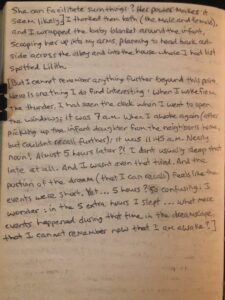 She can facilitate such things? Her power makes it
seem likely.] I thanked them both (the male and female),
and I wrapped the baby blanket around the infant,
scooping her up into my arms, planning to head back out-
side across the alley and into the house where I had 1st
spotted Lilith.
[But I cannot remember anything further beyond this point.
Here is one thing I do find interesting: When I woke from
the thunder, I had seen the clock when I went to open
the windows; it was 7 a.m. When I awoke again (after
picking up the infant daughter from the neighbor's home,
but couldn't recall further), it was 11:45 a.m. Nearly
noon! Almost 5 hours later?! I don't usually sleep that
late at all. And I wasn't even that tired. And the
portion of the dream (that I can recall) feels like the
events were short. Yet... 5 hours? So confusing. I
wonder: in the 5 extra hours I slept... what more
events happened during that time in the dreamscape
that I can not remember now that I am awake?]